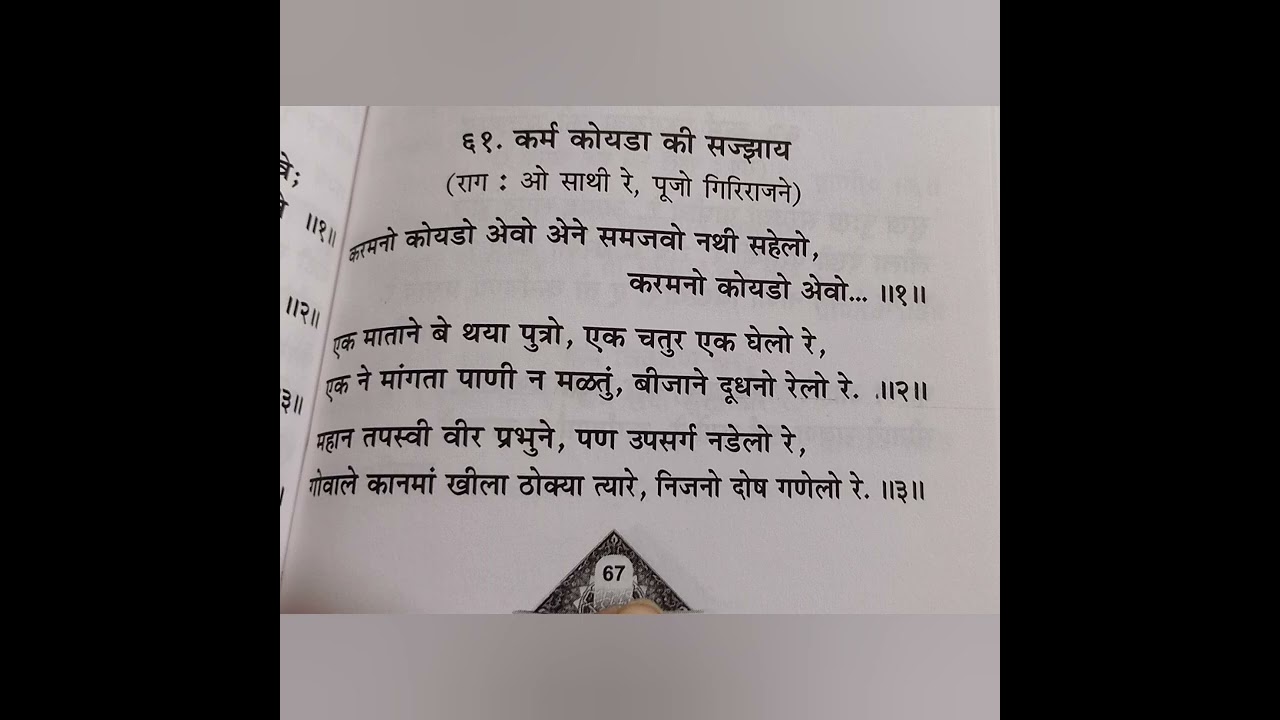 वे;
॥१॥
॥२॥
३॥
६१. कर्म कोयडा की सज्झाय
(राग : ओ साथी रे, पूजो गिरिराजने)
करमनो कोयडो अेवो अेने समजवो नथी सहेलो,
करमनो कोयडो अेवो... ॥१॥
एक माताने बे थया पुत्रो, एक चतुर एक घेलो रे,
एक ने मांगता पाणी न मळतुं, बीजाने दूधनो रेलो रे. .॥२॥
महान तपस्वी वीर प्रभुने, पण उपसर्ग नडेलो रे,
गोवाले कानमां खीला ठोक्या त्यारे, निजनो दोष गणेलो रे. ॥३॥
67